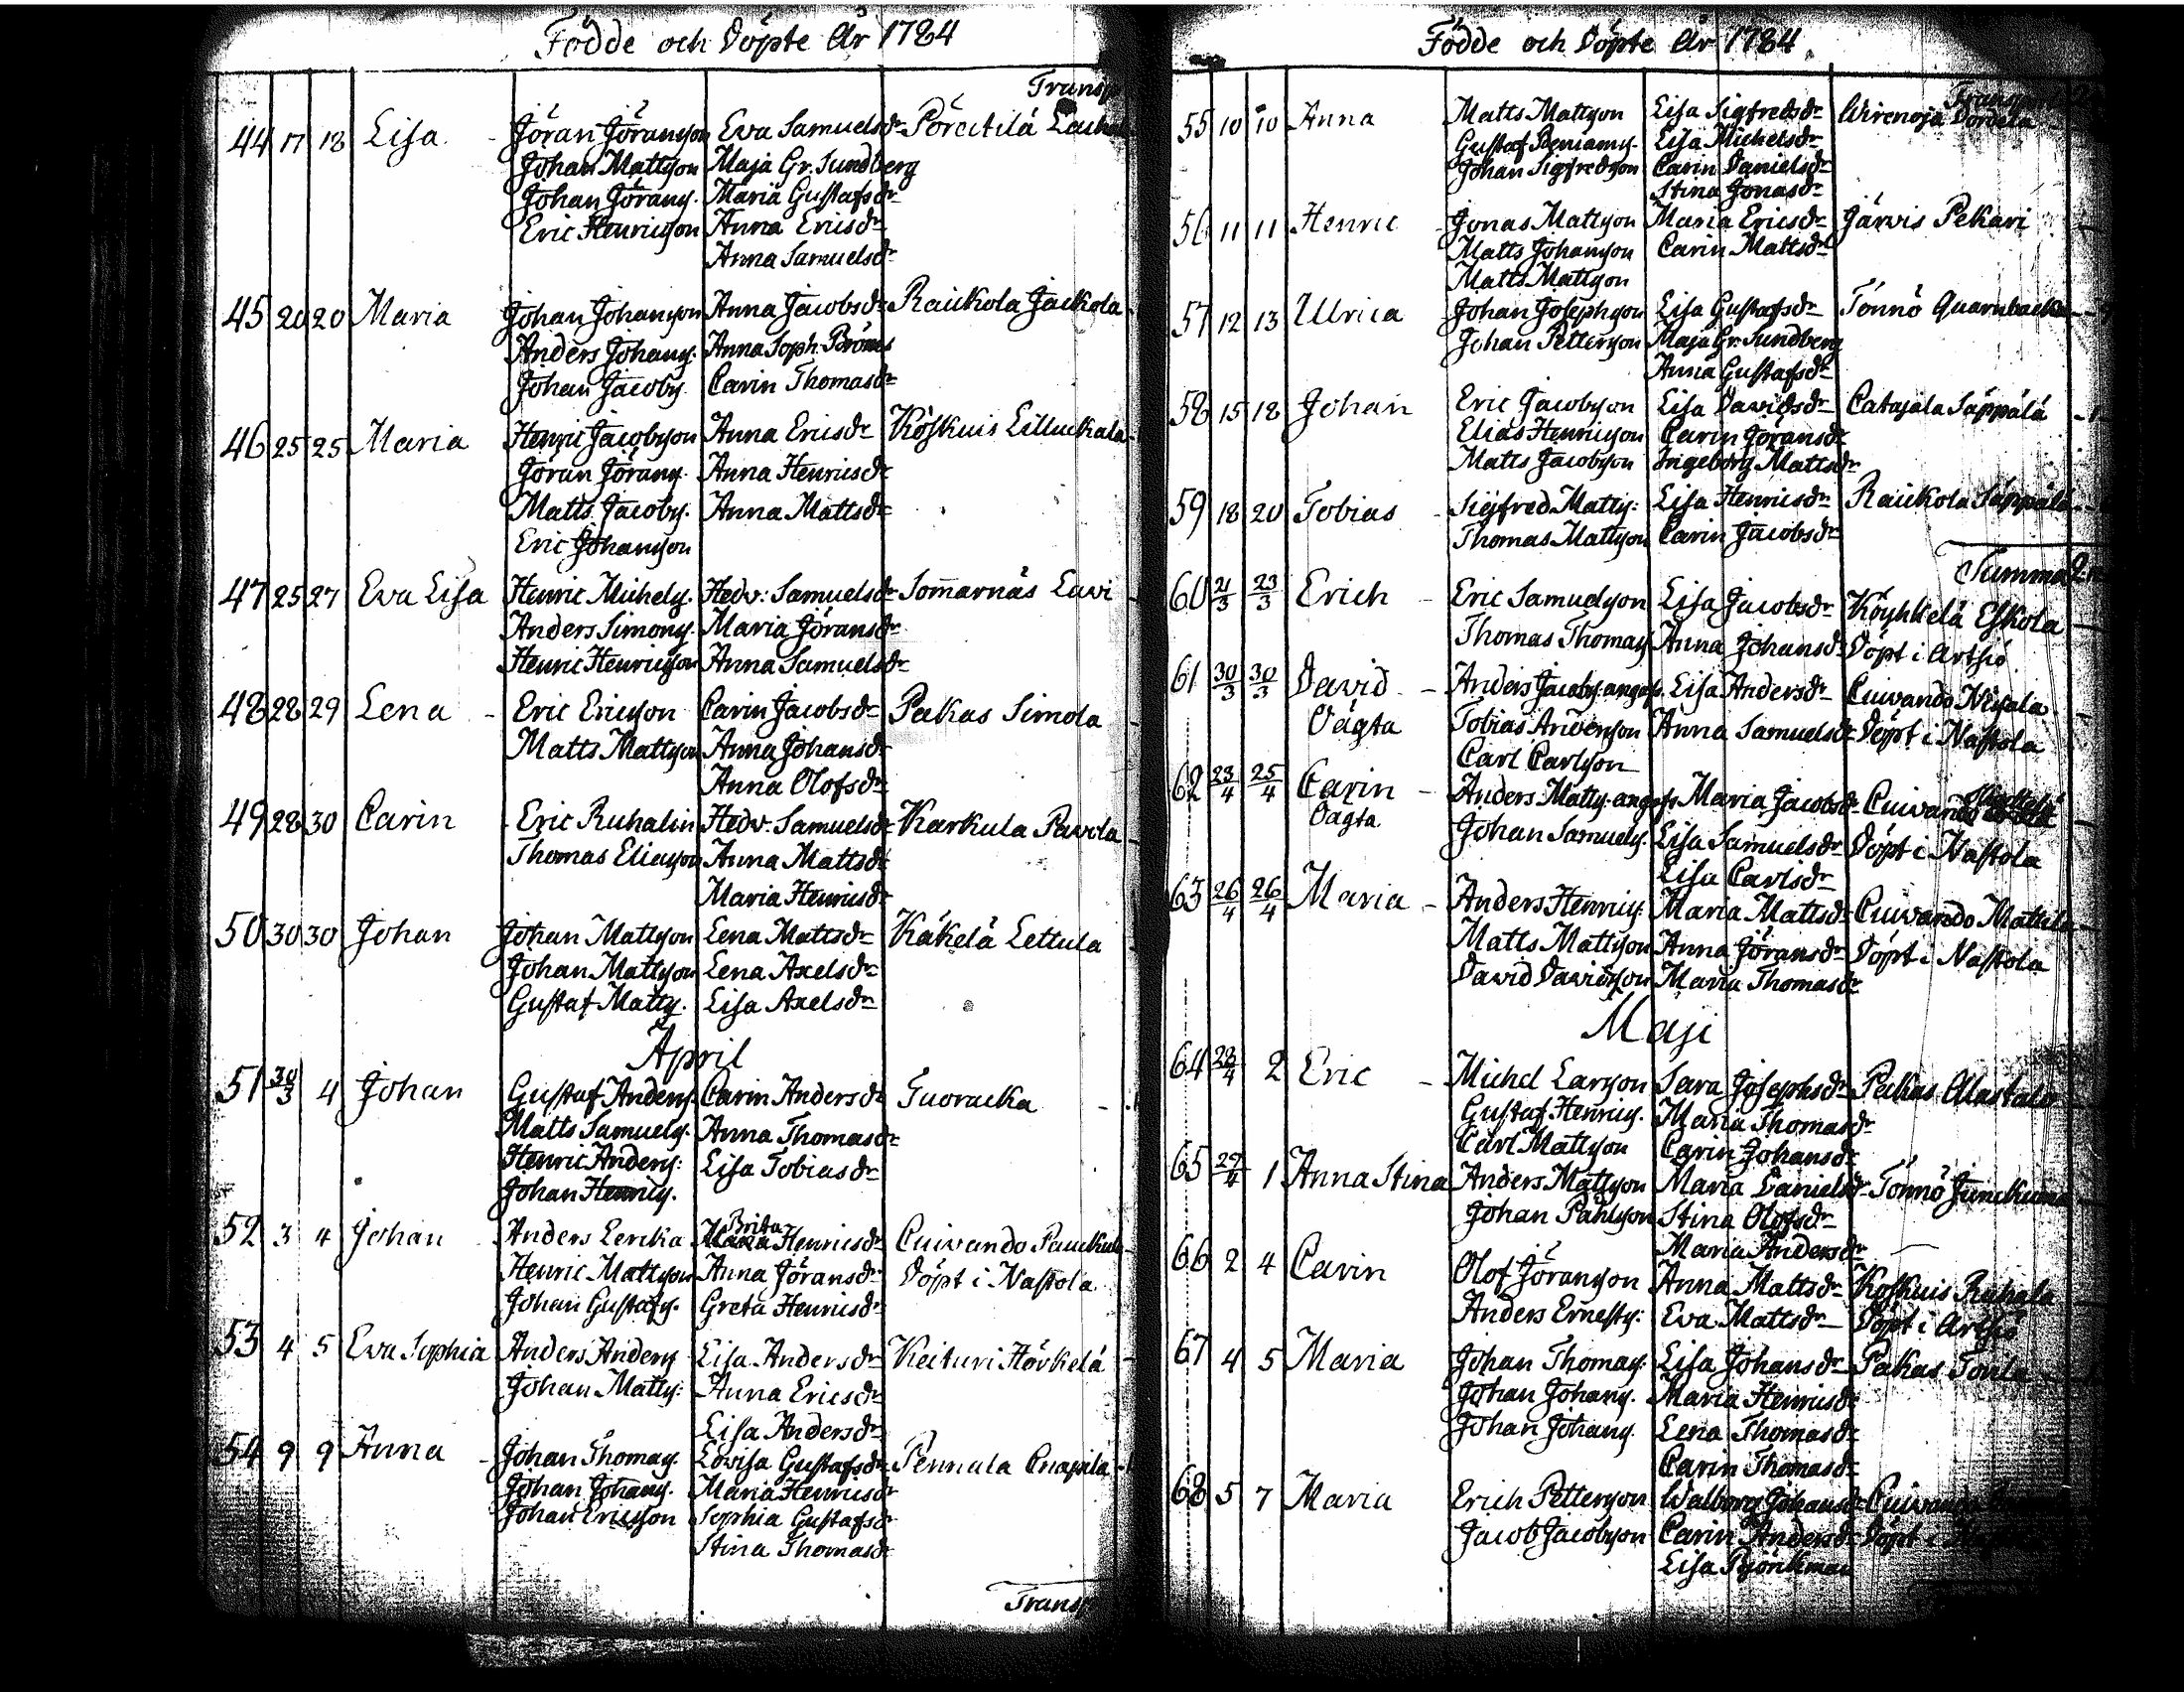 Födde och Döpte År 1784
Transp
44 17 18 Lisa Jöran Jöransson Eva Samuelsdr
Johan Mattsson Maja Gr. Sundberg
Johan Jöranss. Maria Gustafsdr
Eric Henricsson Anna Ericsdr
Anna Samuelsdr
45 20 20 Maria Johan Johansson Anna Jacobsdr Rauckola Jackola
Anders Johanss. Anna Soph.
Johan Jacobss. Carin Thomasdr
46 25 25 Maria Henric Jacobsson Anna Ericsdr Koskuis
Jöran Jöranss. Anna Henricsdr
Matts Jacobss. Anna Mattsdr
Eric Johansson
47 25 27 Eva Lisa Henric Michelss. Hedv: Samuelsdr Som̄arnäs Lavi
Anders Simonss. Maria Jöransdr
Henric Henricsson Anna Samuelsdr
48 28 29 Lena Eric Ericsson Carin Jacobsdr Pakas Simola
Matts Mattsson Anna Johansdr
Anna Olofsdr
49 28 30 Carin Eric Ruhalin Hedv. Samuelsdr Karkula Pavola
Thomas Eliasson Anna Mattsdr
Maria Henricsdr
50 30 30 Johan Johan Mattsson Lena Mattsdr Käkelä Lettula
Johan Mattsson Lena Axelsdr
Gustaf Mattss. Lisa Axelsdr
April
51 30/3 4 Johan Gustaf Anderss. Carin Andersdr Tuoracka
Matts Samuelss. Anna Thomasdr
Henric Anderss: Lisa Tobiasdr
Johan Henricss.
52 3 4 Johan Anders Lericka Brita Henricsdr Cuivando
Henric Mattsson Anna Jöransdr Döpt i Nastola
Johan Gustafss. Greta Henricsdr
53 4 5 Eva Sophia Anders Anderss Lisa Andersdr Keituri Hörkelä
Johan Mattss: Anna Ericsdr
Lisa Andersdr
54 9 9 Anna Johan Thomass. Lovisa Gustafsdr Pennala Cnapila
Johan Johanss. Maria Henricsdr
Johan Ericsson Sophia Gustafsdr
Stina Thomasdr
Transp
Födde och Döpte År 1784
55 10 10 Anna Matts Mattsson Lisa Sigfredsdr Wirenoja
Gustaf Benjamss. Lisa Michelsdr
Johan Sigfredsson Carin Danielsdr
Stina Jonasdr
56 11 11 Henric Jonas Mattsson Maria Ericsdr Järvis Pekari
Matts Johansson Carin Mattsdr
Matts Mattsson
57 12 13 Ulrica Johan Josephsson Lisa Gustafsdr Tönnö Quarnbacka
Johan Pettersson Maja Gr. Sundberg
Anna Gustafsdr
58 15 18 Johan Eric Jacobsson Lisa Davidsdr Catajala Säppälä
Elias Henricsson Carin Jöransdr
Matts Jacobsson Ingeborg Mattsdr
59 18 20 Tobias Sigfred Mattss: Lisa Henricsdr Rauckola Säppälä
Thomas Mattsson Carin Jacobsdr
Summa
60 21/3 23/3 Erich Eric Samuelsson Lisa Jacobsdr Köyhkelä Eskola
Thomas Thomass Anna Johansdr Döpt i Artsiö
61 30/3 30/3 David Anders Jacobss. angifs. Lisa Andersdr Cuivando
Oägta Tobias Andersson Anna Samuelsdr Döpt i Nastola
Carl Carlsson
62 23/4 25/4 Carin Anders Mattss. angifs Maria Jacobsdr Cuivando
Oägta Johan Samuelss. Lisa Samuelsdr Döpt i Nastola
Lisa Carlsdr
63 26/4 26/4 Maria Anders Henricss. Maria Mattsdr Cuivando Mattila
Matts Mattsson Anna Jöransdr Döpt i Nastola
David Davidsson Maria Thomasdr
Maji
64 28/4 2 Eric Michel Larsson Sara Josephsdr Pakas Alastalo
Gustaf Henricss. Maria Thomasdr
Carl Mattsson Carin Johansdr
65 29/4 1 Anna Stina Anders Mattsson Maria Danielsdr Tönnö
Johan Pahlsson Stina Olofsdr
Maria Andersdr
66 2 4 Carin Olof Jöransson Anna Mattsdr Koskuis Ruhala
Anders Ernestss. Eva Mattsdr Döpt i Artsiö
67 4 5 Maria Johan Thomass. Lisa Johansdr Pakas
Johan Johanss. Maria Henricsdr
Johan Johanss. Lena Thomasdr
Carin Thomasdr
68 5 7 Maria Erich Pettersson Walborg Johansdr Cuivando
Jacob Jacobsson Carin Andersdr Döpt i
Lisa Björckman